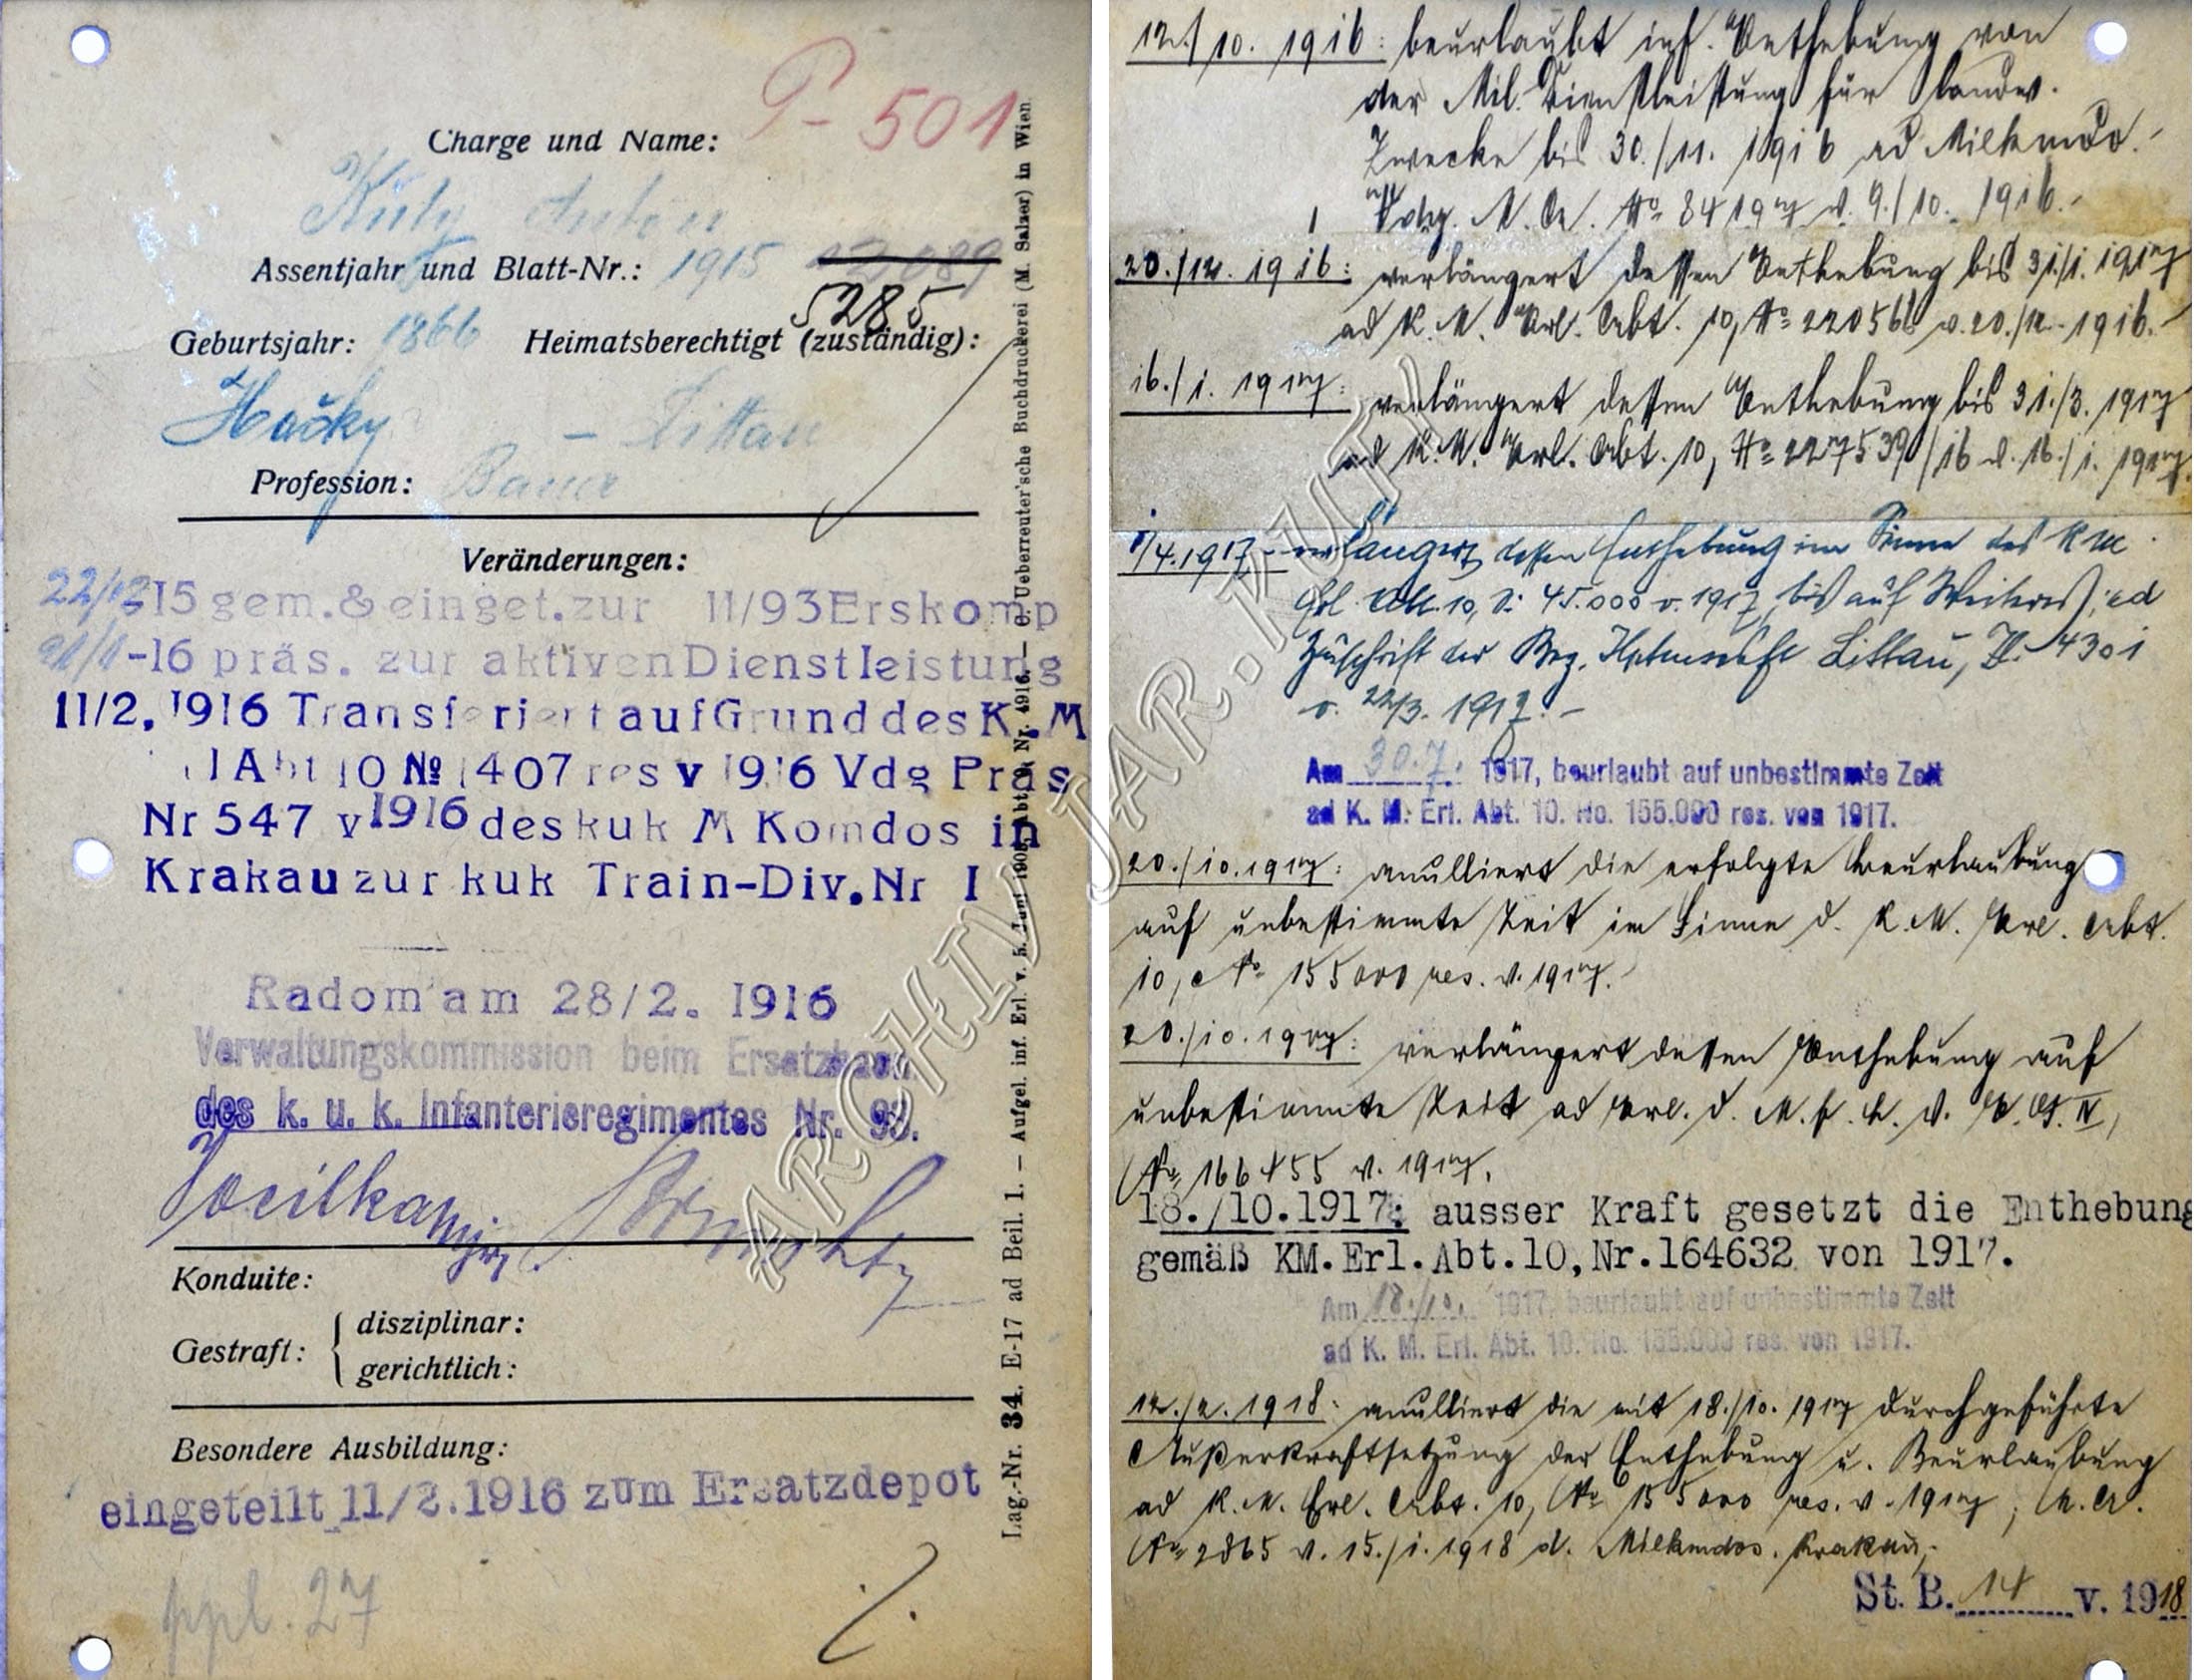 P- 501
Charge und Name:
Kutý Anton
Assentjahr und Blatt-Nr.: 1915
5285
Geburtsjahr: 1866 Heimatsberechtigt (zuständig):
Hačky - Littau
Profession: Bauer
Veränderungen:
22/12 15 gem. & einget. zur 11/93 Erskomp
21/1 -16 präs. zur aktiven Dienstleistung
11/2. 1916 Transferiert auf Grund des K.M
Abt 10 № 1407 res v 1916 Vdg Präs
Nr 547 v 1916 des kuk M Komdos in
Krakau zur kuk Train-Div. Nr I
Radom am 28/2. 1916
Verwaltungskommission beim Ersatzbaon.
des k. u. k. Infanterieregimentes Nr. 93.
Konduite:
Gestraft: { disziplinar:
gerichtlich:
Besondere Ausbildung:
eingeteilt 11/2.1916 zum Ersatzdepot
ppl. 27
Lag.-Nr. 34. E-17 ad Beil. 1. — Aufgel. inf. Erl. v. 5. Juni 1908, Abt. Nr. 4916. — C. Ueberreuter'sche Buchdruckerei (M. Salzer) in Wien.
12./10. 1916: beurlaubt inf. Enthebung von
der Mil. Dienstleistung für landw.
Zwecke bis 30./11. 1916 ad Milkmdo.
Vdg. M.A. № 84197 v. 9./10. 1916.-
20./12. 1916: verlängert dessen Enthebung bis 31./1. 1917
ad K.M. Erl. Abt. 10, № 220566 v. 20./12. 1916.-
16./1. 1917: verlängert dessen Enthebung bis 31./3. 1917
ad K.M. Erl. Abt. 10, № 227539/16 v. 16./1. 1917.
1/4.1917 - verlängert dessen Enthebung im Sinne des KM
Erl. Abt. 10, № 45.000 v. 1917 bis auf Weiteres; ad
Zuschrift der Bez. Hptmschft Littau, Z. 4301
v. 22/3. 1917.-
Am 30.7. 1917, beurlaubt auf unbestimmte Zeit
ad K. M. Erl. Abt. 10. No. 155.000 res. von 1917.
20./10.1917: anulliert die erfolgte Beurlaubung
auf unbestimmte Zeit im Sinne d. K.M. Erl. Abt.
10, № 155000 res. v. 1917.
20./10.1917: verlängert dessen Enthebung auf
unbestimmte Zeit ad Erl. d. M.f.L.V. IV,
№ 166455 v. 1917.
18./10.1917: ausser Kraft gesetzt die Enthebung
gemäß KM.Erl.Abt.10,Nr.164632 von 1917.
Am 18./10. 1917, beurlaubt auf unbestimmte Zeit
ad K. M. Erl. Abt. 10. No. 155.000 res. von 1917.
12./2. 1918: anulliert die mit 18./10. 1917 durchgeführte
Außerkraftsetzung der Enthebung u. Beurlaubung
ad K.M. Erl. Abt. 10, № 155000 res. v. 1917, M.A.
№ 2865 v. 15./1. 1918 d. Milkmdos. Krakau.
St. B. 14 v. 1918
ARCHIV JAR.KUTÝ